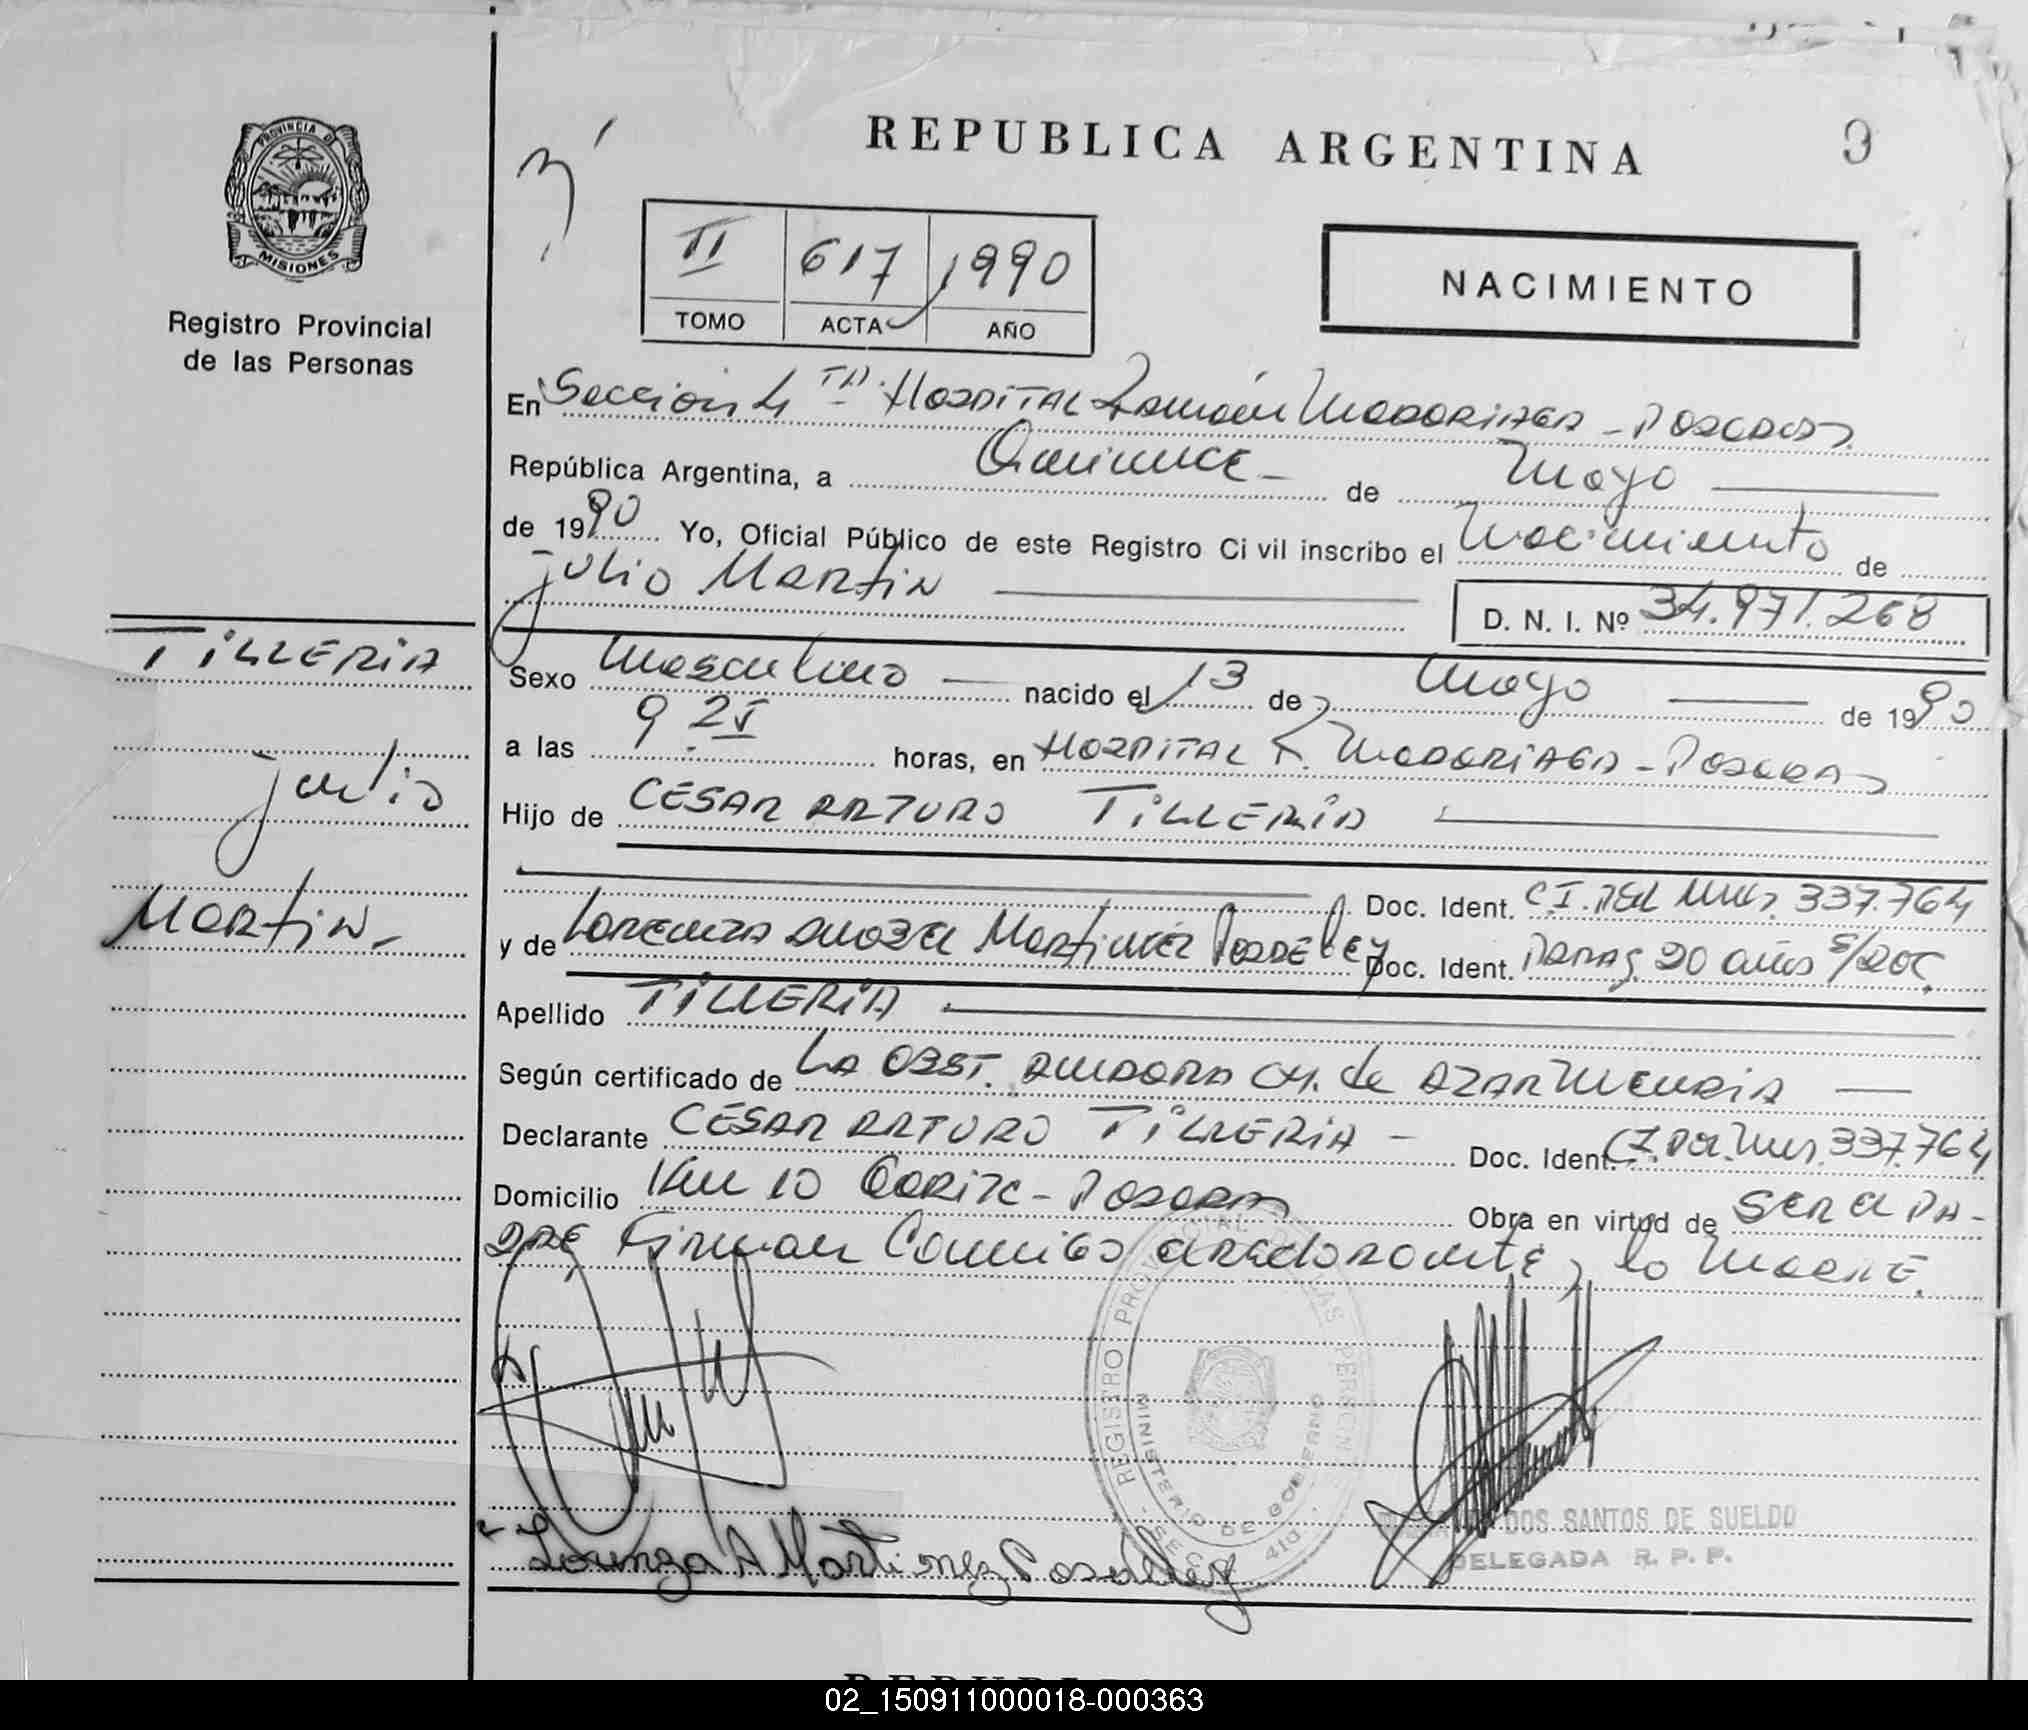 REPUBLICA ARGENTINA
PROVINCIA D
MISIONES
Registro Provincial
de las Personas
II 617 1990
TOMO ACTA AÑO
NACIMIENTO
En Sección 4 TA. HOSPITAL Ramón MADARIAGA - POSADAS
República Argentina, a Quince de Mayo
de 1990 Yo, Oficial Público de este Registro Civil inscribo el Nacimiento de
Julio Martin
D. N. I. Nº 34.971.268
TILLERIA
Julio
Martin.-
Sexo Masculino nacido el 13 de Mayo de 1990
a las 9 25 horas, en HOSPITAL R. MADARIAGA - POSADAS
Hijo de CESAR ARTURO TILLERIA
Doc. Ident. C.I. DEL MNES. 337.764
y de LORENZA Martinez Doc. Ident. 20 años S/DOC.
Apellido TILLERIA
Según certificado de LA OBST. AMDORA CH. de
Declarante CESAR ARTURO TILLERIA - Doc. Ident. C.I. 337.764
Domicilio Km 10 - POSADAS Obra en virtud de SER EL PA-
DRE, Firman Conmigo el declarante y la MADRE.
REGISTRO PROVINCIAL LAS PERSON
MINISTERIO DE GOBIERNO
Lorenza A Martinez
DOS SANTOS DE SUELDO
DELEGADA R. P. P.
02_150911000018-000363